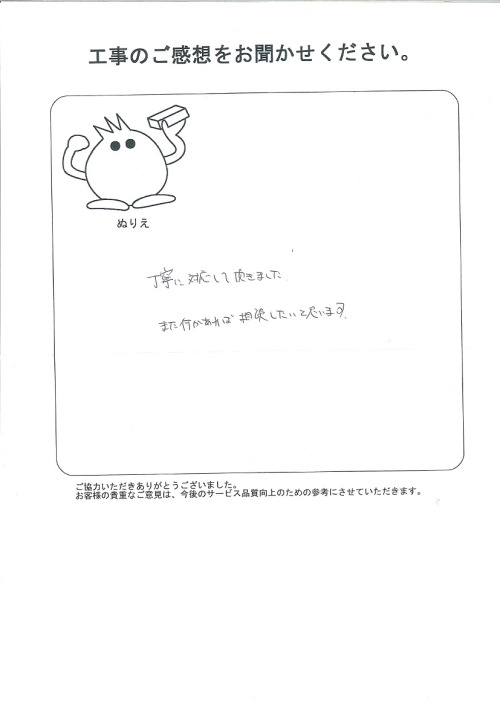 工事のご感想をお聞かせください。
ぬりえ
丁寧に対応して頂きました
また何かあれば相談したいと思います。
ご協力いただきありがとうございました。
お客様の貴重なご意見は、今後のサービス品質向上のための参考にさせていただきます。